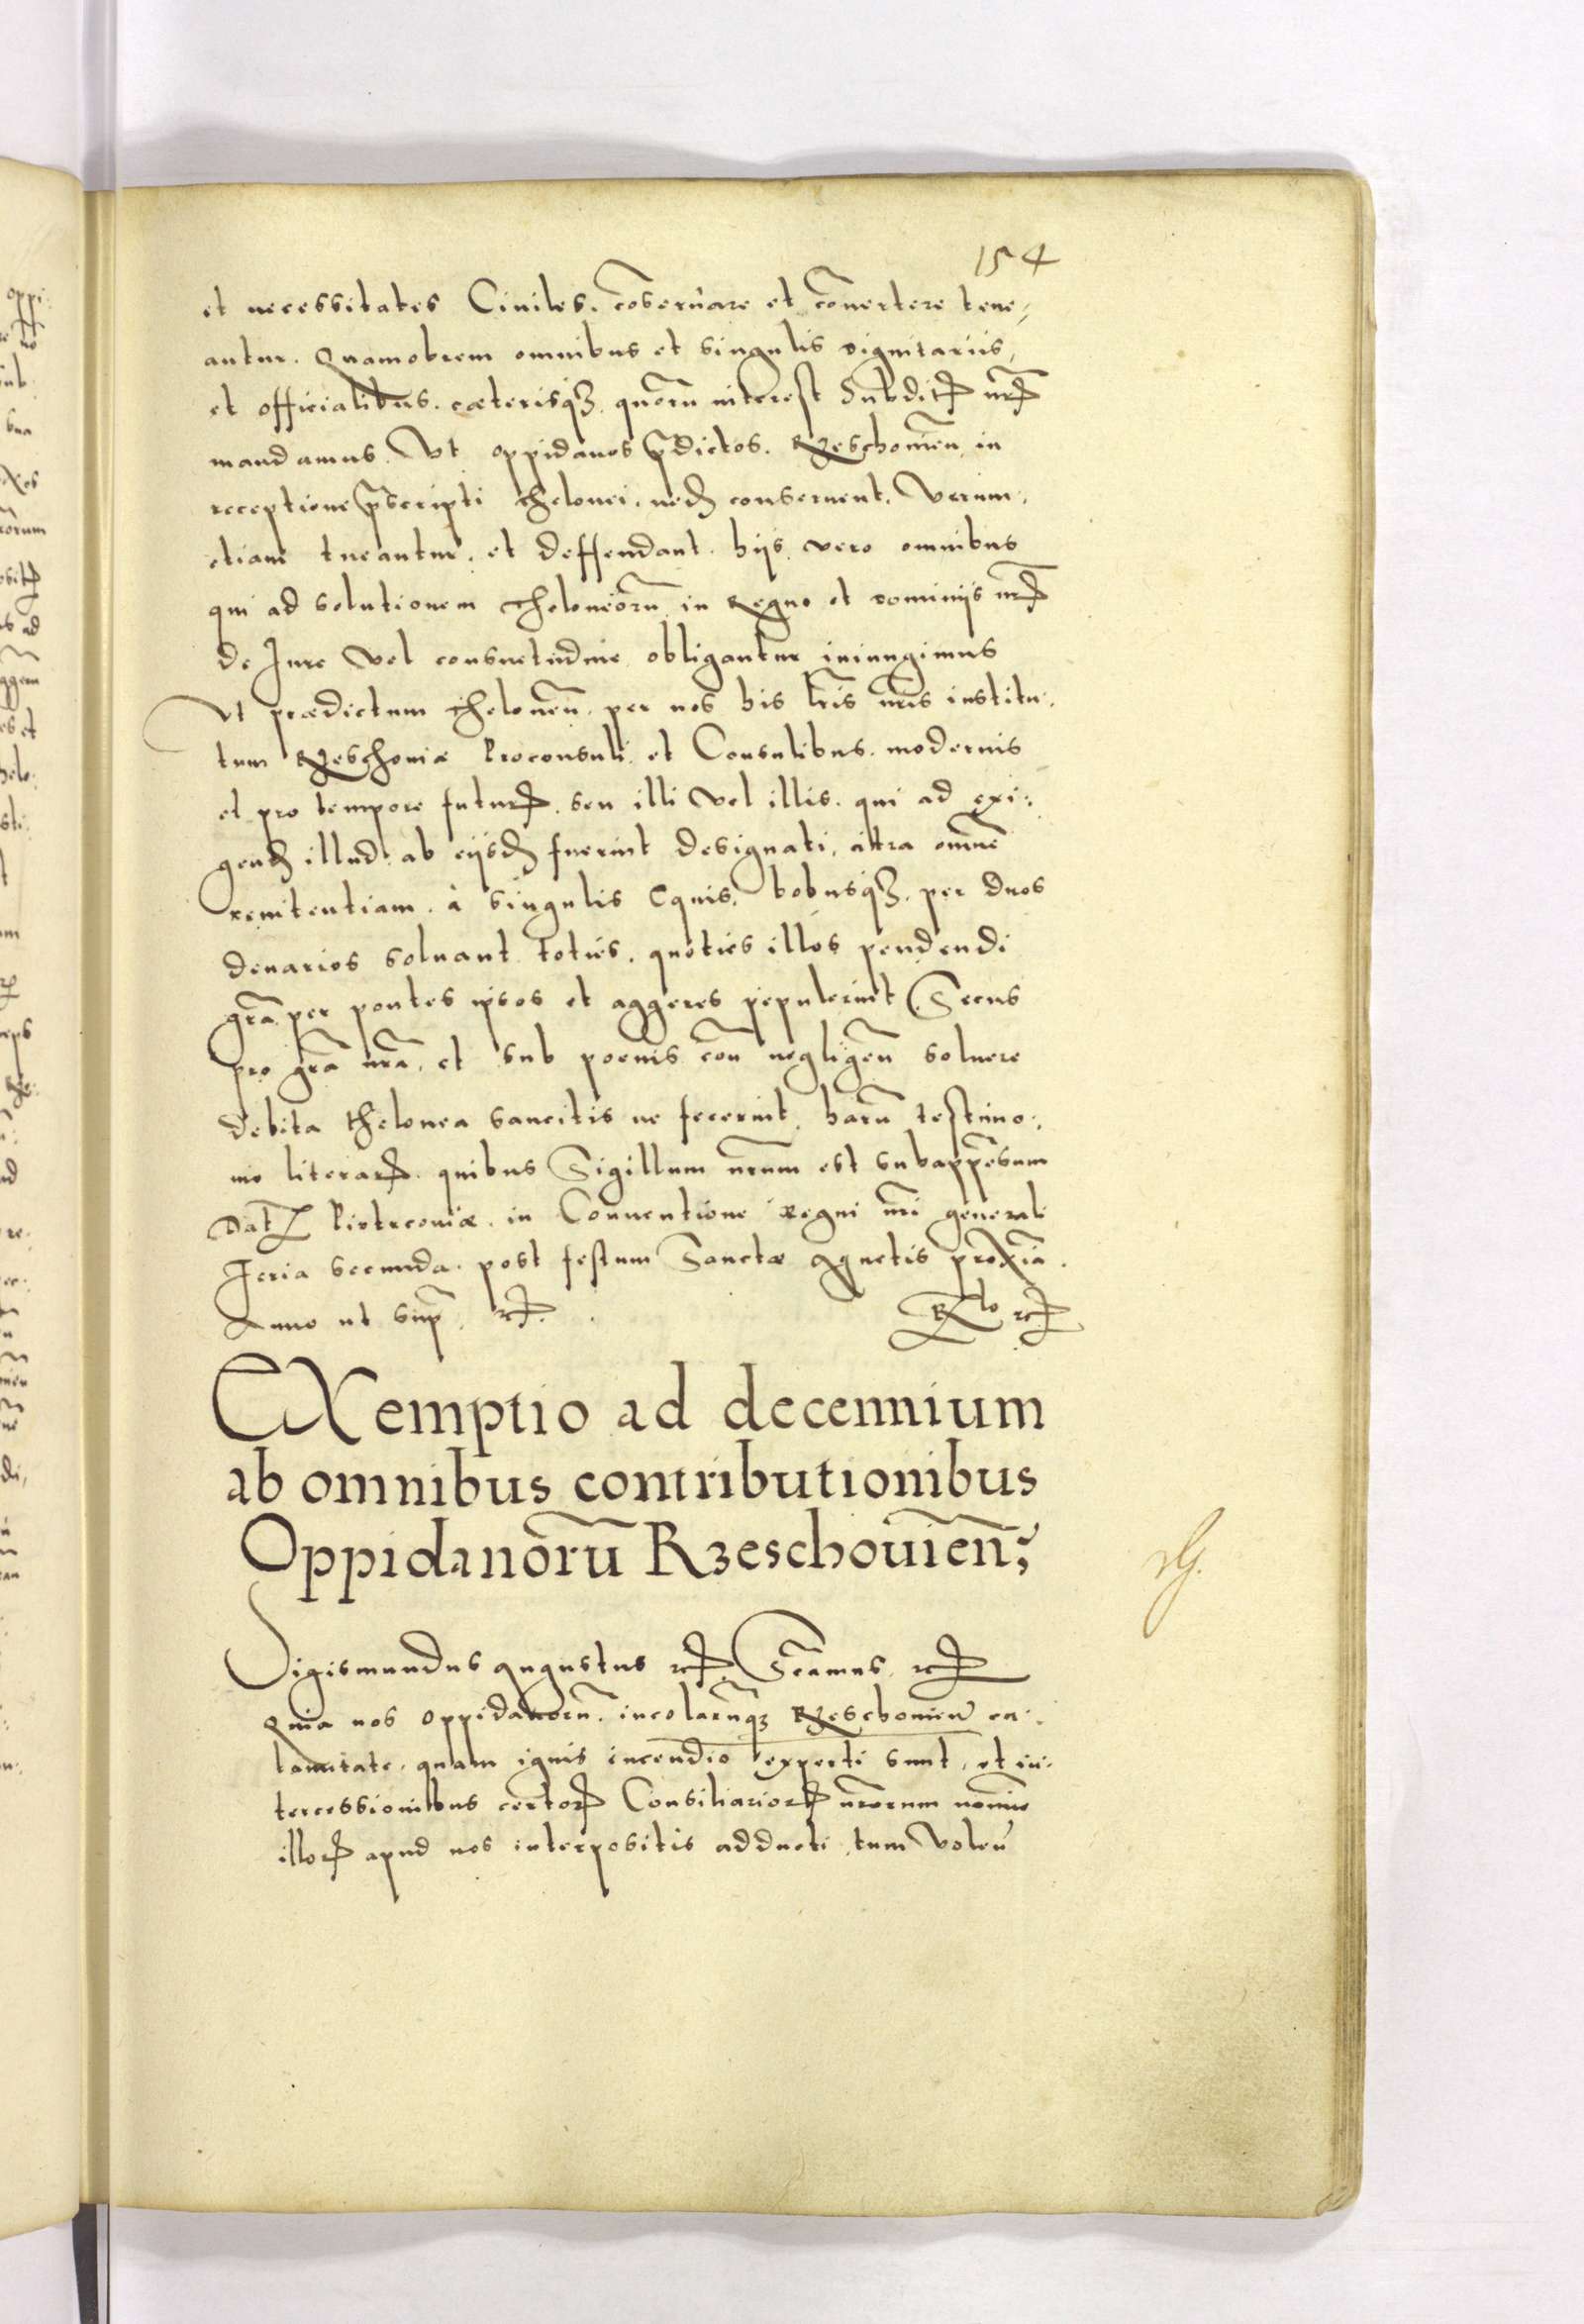 154
et necessitates Ciuiles. cõseruare et cõuertere tene⸗
antur. Quamobrem omnibus et singulis dignitariis,
et officialibus. cæterisq3. quorũ interest Subditꝝ nr̃ꝝ
mandamus. Vt oppidanos p̃dictos. Rzeschouieñ. in
receptione p̃scripti thelonei. nedɜ conseruent. Verum.
etiam tueantur. et deffendant. hijs vero omnibus
qui ad solutionem theloneorũ in Regno et dominijs nr̃ꝝ
de Iure vel consuetudine obligantur iniungimus
Vt prædictum theloneũ. per nos his lr̃is nr̃is institu⸗
tum Rzeschouiæ Proconsuli. et Consulibus. modernis
et pro tempore futurꝝ. seu illi vel illis. qui ad exi⸗
gendɜ illud. ab eijsdɜ fuerint designati. citra omnẽ
renitentiam. à singulis Equis. bobusq3. per duos
denarios soluant toties. quoties illos pendendi
gr̃a per pontes ipsos et aggeres pepulerint. Secus
pro gr̃a nr̃a. et sub poenis cõn negligeñ soluere
debita thelonea sancitis ne fecerint. harũ testimo⸗
nio literarꝝ. quibus Sigillum nr̃um est subapp̃ensum
Datꝝ Piotrcouiæ. in Conuentione Regni nr̃i generali
Feria secunda. post festum Sanctæ Agnetis proxĩa.
Anno ut sup̃. ꝛcꝭ.
Rlo ꝛcꝭ
EXemptio ad decennium
ab omnibus contributionibus
Oppidanorũ Rzeschouieñ;
rG.
Sigismundus Augustus ꝛcꝭ. Sc̃amus. ꝛcꝭ
Quia nos oppidanorũ. incolarũq3 Rzeschouieñ ca⸗
lamitate. quam ignis incendio experti sunt. et in⸗
tercessionibus certorꝝ Consiliariorꝝ nr̃orum nomine
illorꝝ apud nos interpositis adducti. tum voleñ